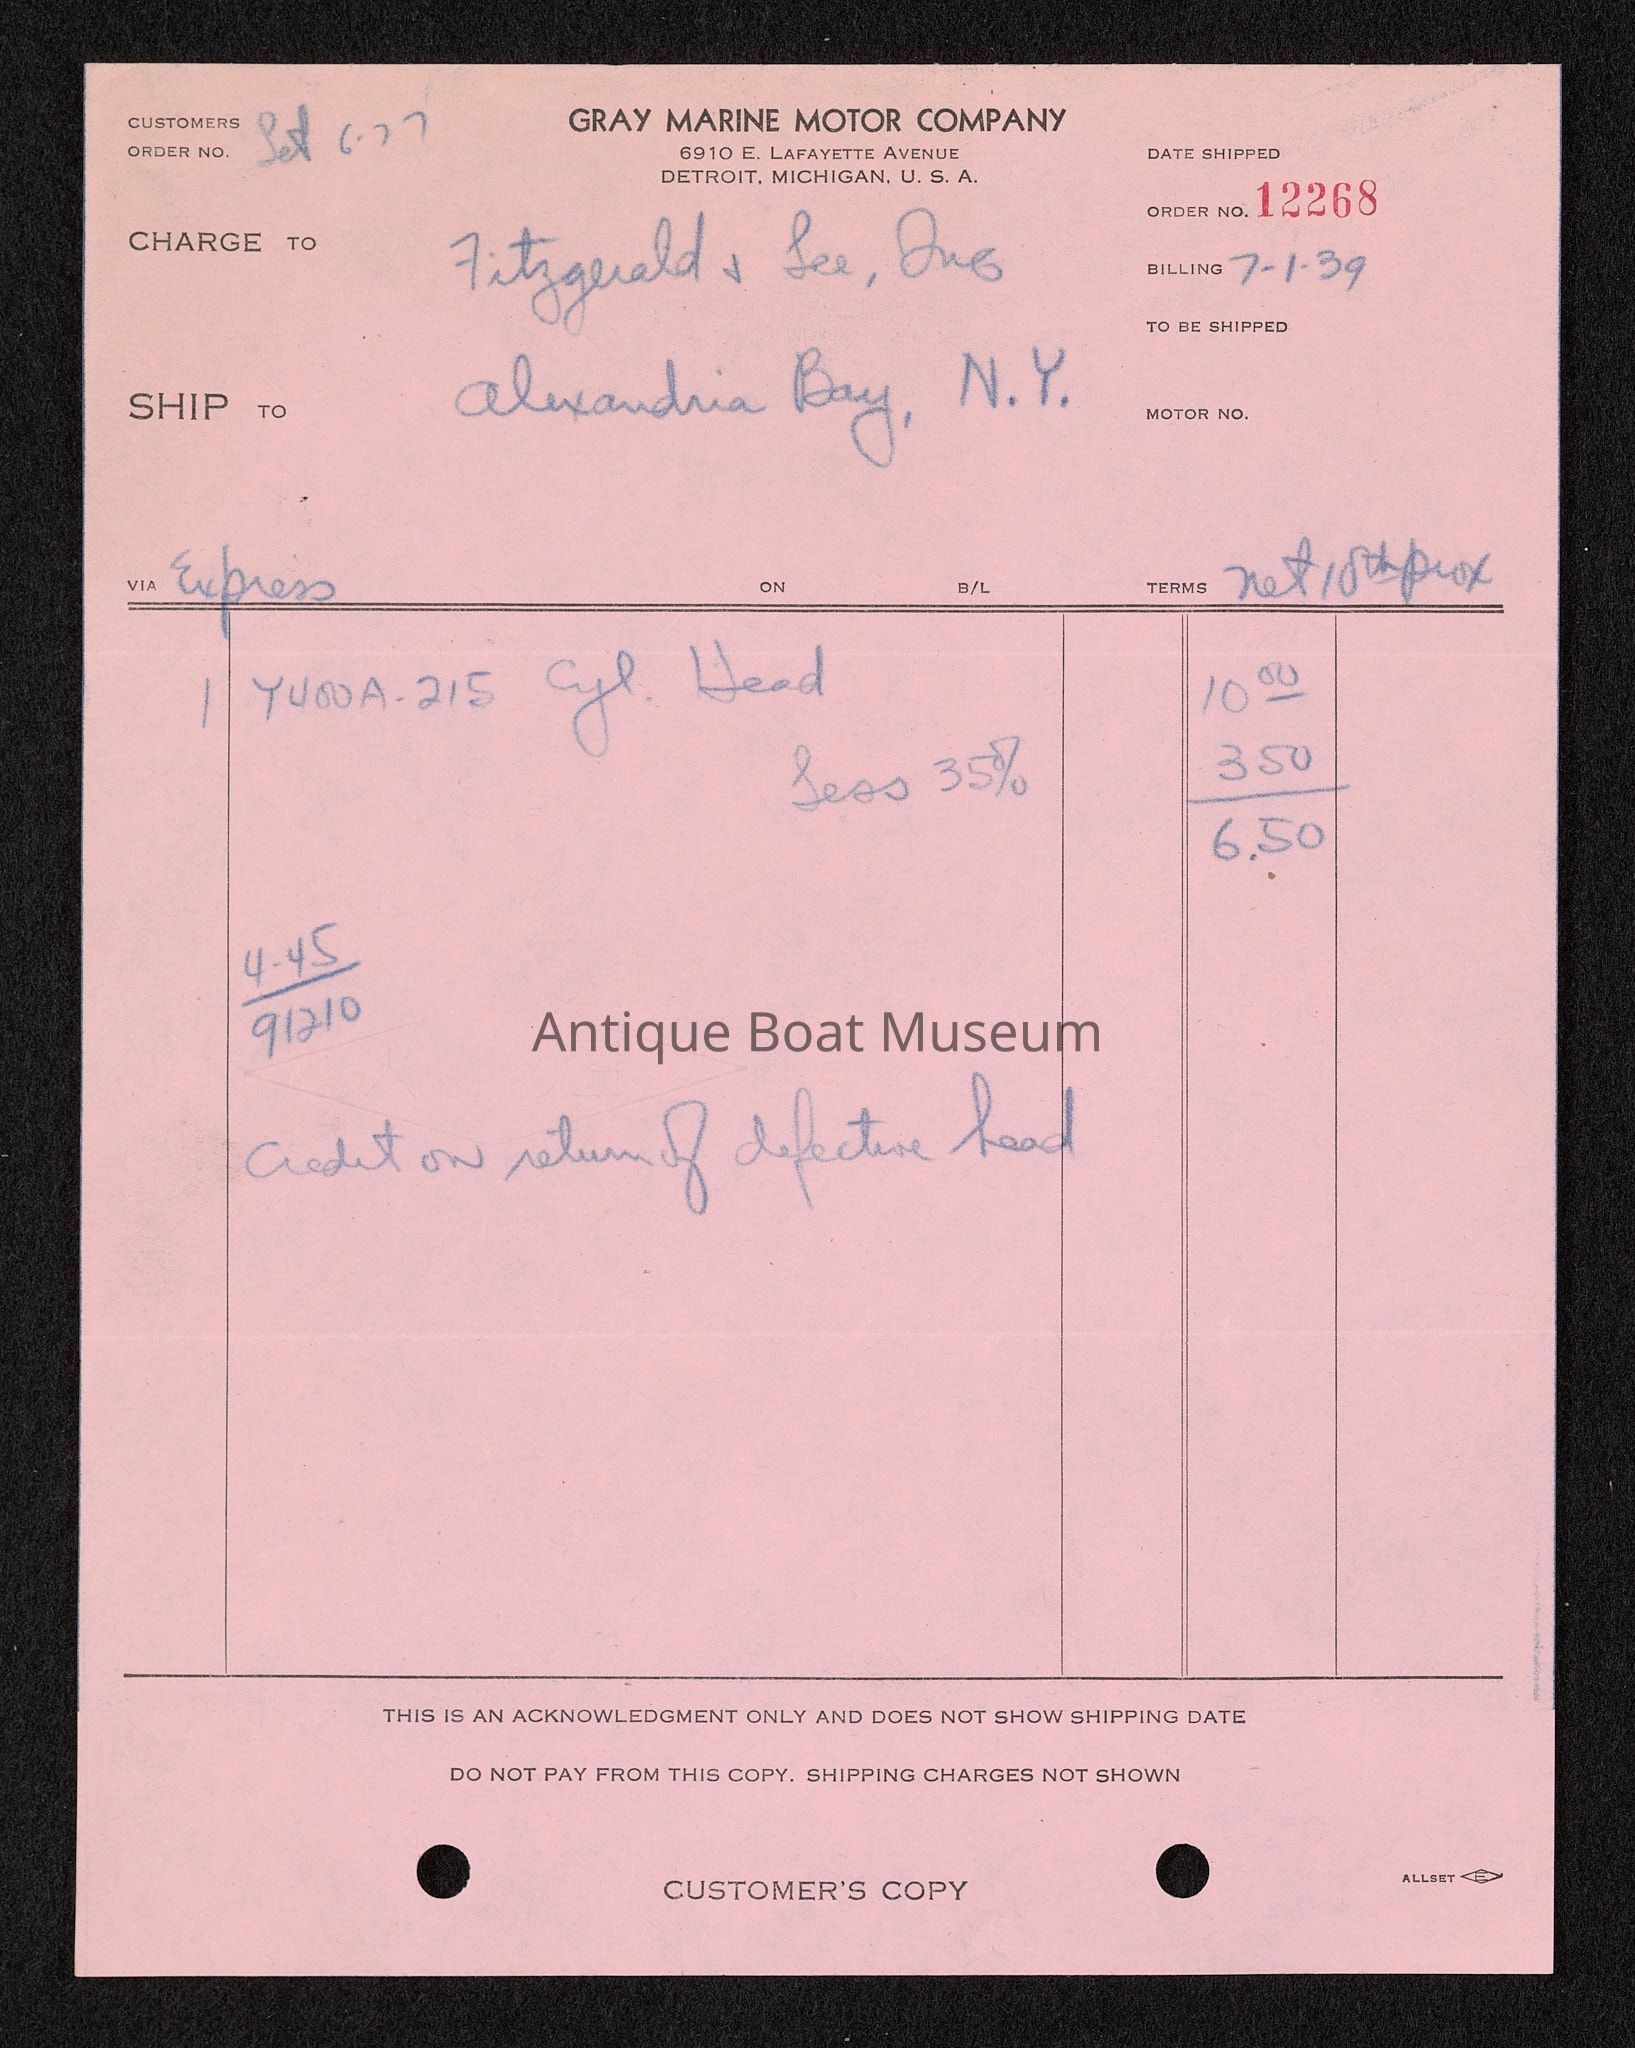 CUSTOMERS
ORDER NO. Let 6-27
GRAY MARINE MOTOR COMPANY
6910 E. LAFAYETTE AVENUE
DETROIT, MICHIGAN, U. S. A.
DATE SHIPPED
ORDER NO. 12268
CHARGE TO Fitzgerald & Lee, Inc
BILLING 7-1-39
TO BE SHIPPED
SHIP TO Alexandria Bay, N.Y.
MOTOR NO.
VIA Express ON B/L TERMS net 10th prox
1 Y400A-215 Cyl. Head 10 00
Less 35% 3 50
6.50
4-45
91210
Antique Boat Museum
Credit on return of defective head
THIS IS AN ACKNOWLEDGMENT ONLY AND DOES NOT SHOW SHIPPING DATE
DO NOT PAY FROM THIS COPY. SHIPPING CHARGES NOT SHOWN
CUSTOMER'S COPY
ALLSET E